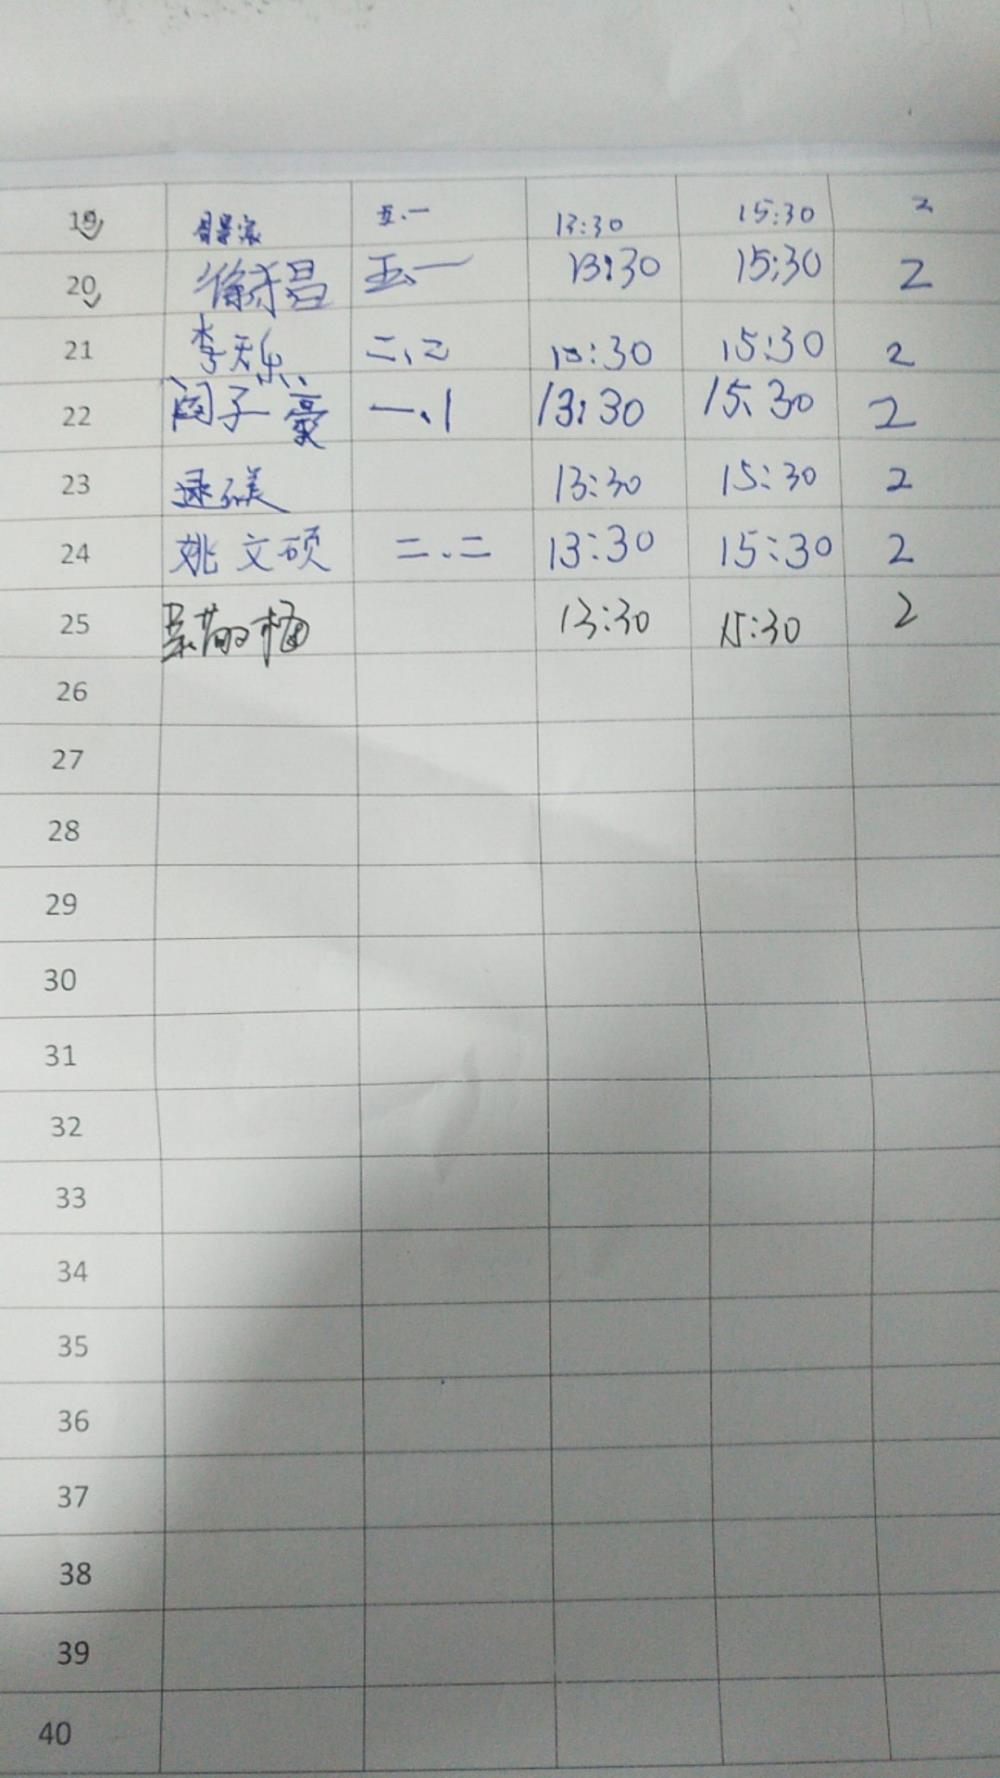 19 五、一 13:30 15:30 2
20 徐 昌 五、一 13:30 15:30 2
21 李天乐 二、二 13:30 15:30 2
22 闫子豪 一、1 13:30 15:30 2
23 13:30 15:30 2
24 姚文硕 二、二 13:30 15:30 2
25 13:30 15:30 2
26
27
28
29
30
31
32
33
34
35
36
37
38
39
40